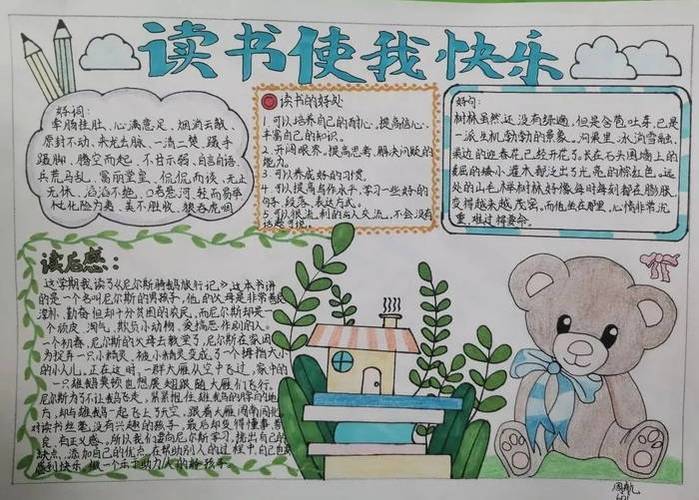 读书使我快乐
好词:
牵肠挂肚、心满意足、烟消云散、
原封不动、来龙去脉、一清二楚、蹑手
蹑脚、腾空而起、不甘示弱、自言自语、
兵荒马乱、富丽堂皇、侃侃而谈、无止
无休、滔滔不绝、口若悬河、轻而易举
化险为夷、美不胜收、狼吞虎咽
读书的好处
1.可以培养自己的耐心。提高信心,
丰富自己的知识。
2.开阔眼界。提高思考、解决问题的
能力。
3.可以养成好的习惯。
4.可以提高写作水平,学习一些好的
句子、段落、表达方式。
5.可以很流利的与人交流,不会没有
好句:
树林虽然还没有绿遍,但是含苞吐芽,已是
一派生机勃勃的景象。沟渠里,水淌雪融,
渠边的迎春花已经开花了。长在石头围墙上的
远处的山毛榉树林好像每时每刻都在膨胀,
变得越来越茂密。而他坐在那里,心情非常沉
重,难过得要命。
读后感:
这学期我读了《尼尔斯骑鹅旅行记》这本书讲
的是一个名叫尼尔斯的男孩子,他的父母是非常善良
淳朴、勤奋但却十分贫困的农民,而尼尔斯却是一
个顽皮、淘气、欺负小动物、爱搞恶作剧的人。
一个初春,尼尔斯的父母去教堂了,尼尔斯在家因
为捉弄一只小精灵,被小精灵变成了一个拇指大小
的小人儿。正在这时,一群大雁从空中飞过,家中的
一只雄鹅莫顿也想展翅跟随大雁们飞行。
尼尔斯为了不让鹅飞走,紧紧抱住雄鹅的
方,却与雄鹅一起飞上了天空。跟着大雁周游
对读书丝毫没有兴趣的孩子。最后却变得懂事善
良、有正义感。所以我们应向尼尔斯学习,找出自己的
缺点,添加自己的优点,在帮助别人的过程中,自己也
感到快乐,做一个乐于助人的好孩子。
周航
601